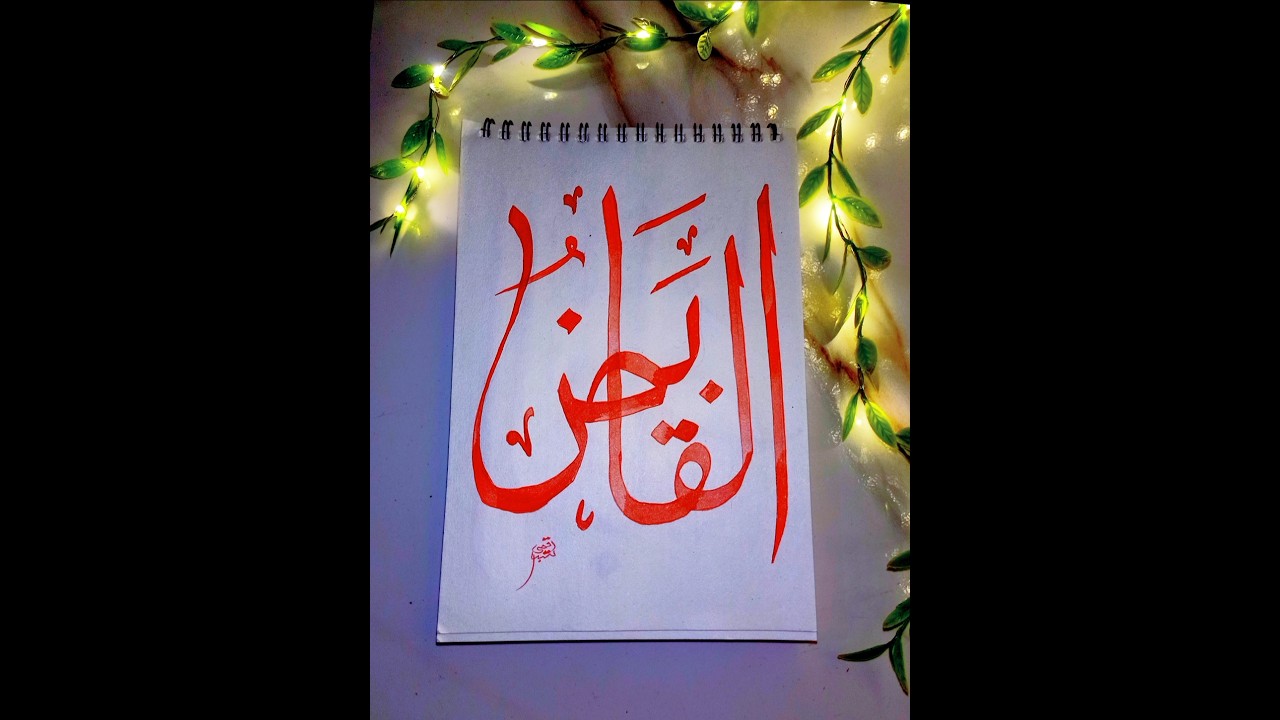 القابض